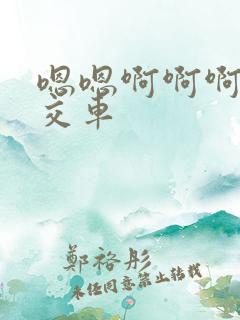 嗯嗯啊啊啊
交车
鄭裕彤
未经同意禁止转载